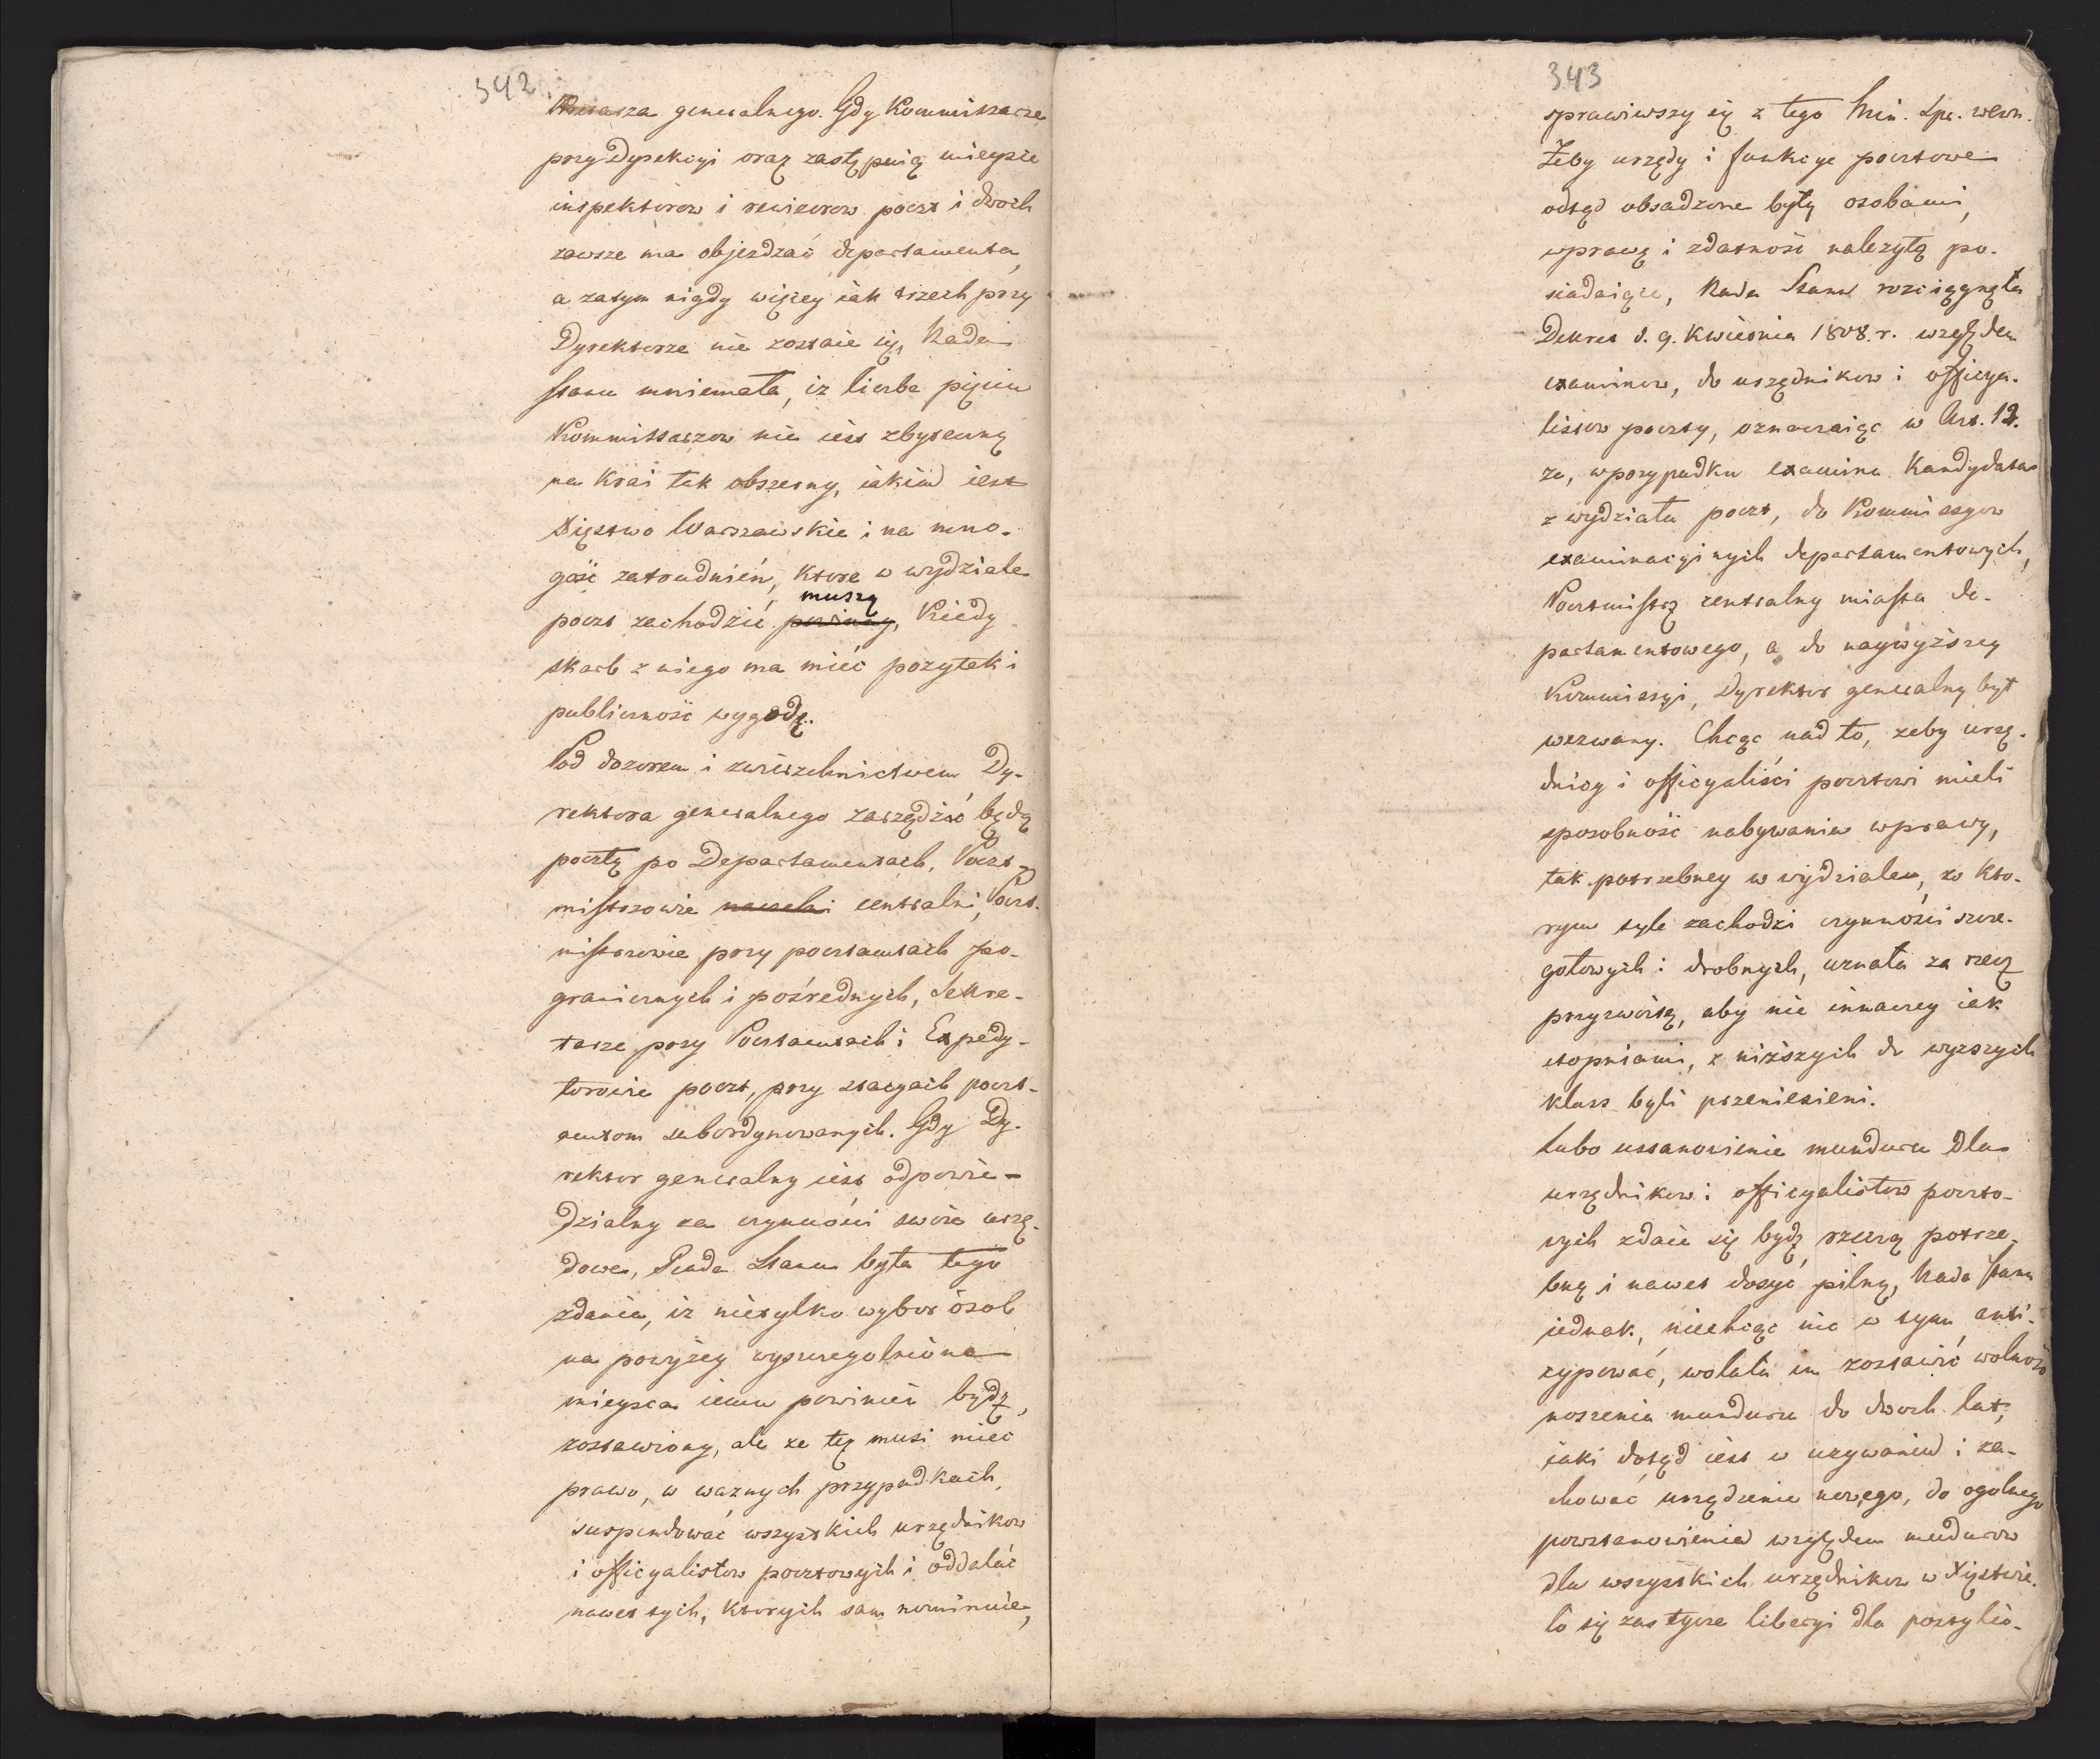 342.
generalnego. Gdy Kommissarze
przy Dyrekcyi oraz zastępuią mieysce
inspektorow i rewizorow poczt i dwoch
zawsze ma objezdzać departamenta,
a zatym nigdy więcey iak trzech przy
Dyrektorze nie zostaie się, Rada
Stanu mniemała, iż liczba pięciu
Kommissarzow nie iest zbyteczną
na Kraj tak obszerny, iakim iest
Xięstwo Warszawskie i na mno-
gość zatrudnień, ktore w wydziale
muszą
poczt zachodzić powinny, Kiedy
skarb z niego ma mieć pozytek i
publiczność wygodę.
Pod dozorem i zwierzchnictwem Dy-
rektora generalnego zarządzać będą
pocztą po Departamentach, Poczt-
mistrzowie naczelni centralni, Poczt-
mistrzowie przy pocztamtach po-
granicznych i pośrednych, Sekre-
tarze przy Pocztamtach i Expedy-
torowie poczt, przy stacyach poczt-
amtom subordynowanych. Gdy Dy-
rektor generalny iest odpowie-
dzialny za czynności swoie urzę-
dowe, Rada Stanu była tego
zdania, iż nietylko wybor osob
na powyżey wyszczegolnione
mieysca iemu powinien bydź
zostawiony, ale ze też musi mieć
prawo, w waznych przypadkach,
suspendować wszystkich urzędnikow
i officyalistow pocztowych i oddalać
nawet tych, ktorych sam nominuie,
343
sprawiwszy się z tego Min. Spr. wewn.
Żeby urzędy i funkcye pocztowe
odtąd obsadzone były osobami,
wprawę i zdatność nalezytą po-
siadaiące, Rada Stanu rozciągnęła
Dekret d. 9. Kwietnia 1808. r. względem
examinow, do urzędnikow i officya-
listow poczty, oznaczaiąc w Art. 12.
ze, w przypadku examinu Kandydata
z wydziału poczt, do Kommissyow
examinacyinych departamentowych,
Pocztmistrz centralny miasta de-
partamentowego, a do naywyższey
Kommissyi, Dyrektor generalny był
wezwany. Chcąc nad to, zeby urzę-
dnicy i officyaliści pocztowi mieli
sposobność nabywania wprawy,
tak potrzebney w wydziale, w kto-
rym tyle zachodzi czynności szcze-
gołowych i drobnych, uznała za rzecz
przyzwoitą, aby nie inaczey iak
stopniami, z niższych do wyzszych
klass byli przeniesieni.
Lubo ustanowienie munduru dla
urzędnikow i officyalistow poczto-
wych zdaie się bydź rzeczą potrze-
bną i nawet dosyć pilną, Rada Stanu
iednak, niechcąc nic w tym anti-
cypować, wolała im zostawić wolność
noszenia munduru do dwoch lat,
iaki dotąd iest w uzywaniu i za-
chować urządzenie nowego, do ogolnego
postanowienia względem mundurow
dla wszystkich urzędnikow w Xięstwie.
Co się zas tycze liberyi dla pocztylio-